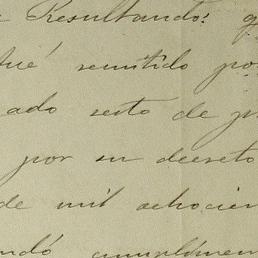 Resultando: q
fué remitido po
ado sesto de pr
por su decreto
de mil ochocien
ndó cumplimen